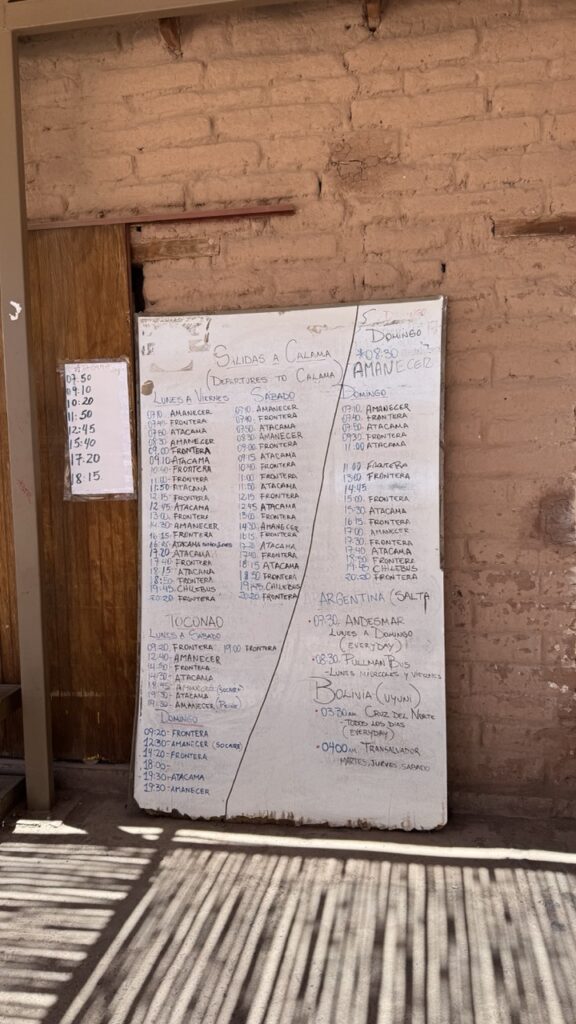 07:50
09:10
10:20
11:50
12:45
15:40
17:20
18:15
SALIDAS A CALAMA
(DEPARTURES TO CALAMA)
LUNES A VIERNES
07:10 AMANECER
07:40 FRONTERA
07:50 ATACAMA
08:30 AMANECER
09:00 FRONTERA
09:10 ATACAMA
10:40 FRONTERA
11:00 FRONTERA
11:50 ATACAMA
12:15 FRONTERA
12:45 ATACAMA
13:00 FRONTERA
14:30 AMANECER
16:15 FRONTERA
ATACAMA
17:20 ATACAMA
17:40 FRONTERA
18:15 ATACAMA
18:50 FRONTERA
19:45 CHILEBUS
20:20 FRONTERA
SABADO
07:10 AMANECER
07:40 FRONTERA
07:50 ATACAMA
08:30 AMANECER
09:00 FRONTERA
09:15 ATACAMA
10:40 FRONTERA
11:00 FRONTERA
11:50 ATACAMA
12:15 FRONTERA
12:45 ATACAMA
13:00 FRONTERA
14:30 AMANECER
16:15 FRONTERA
17:20 ATACAMA
17:40 FRONTERA
18:15 ATACAMA
18:50 FRONTERA
19:45 CHILEBUS
20:20 FRONTERA
DOMINGO
*08:30
AMANECER
DOMINGO
07:10 AMANECER
07:40 FRONTERA
07:50 ATACAMA
09:30 FRONTERA
11:00 ATACAMA
11:00 FRONTERA
13:00 FRONTERA
14:45
15:00 FRONTERA
15:30 ATACAMA
16:15 FRONTERA
17:00 AMANECER
17:30 FRONTERA
17:40 ATACAMA
18:50 FRONTERA
19:45 CHILEBUS
20:20 FRONTERA
TOCONAO
LUNES A SABADO
09:20 FRONTERA 19:00 FRONTERA
12:40 AMANECER
14:20 FRONTERA
ATACAMA
18:45 AMANECER (SOCAIRE)
19:30 ATACAMA
19:30 AMANECER (PEINE)
DOMINGO
09:20 - FRONTERA
12:30 - AMANECER (SOCAIRE)
14:20 - FRONTERA
18:00 -
19:30 - ATACAMA
19:30 - AMANECER
ARGENTINA (SALTA
• 07:30 ANDESMAR
LUNES A DOMINGO
(EVERYDAY)
• 08:30 PULLMAN BUS
- LUNES MIERCOLES Y VIERNES
BOLIVIA (UYUNI)
• 03:30 AM CRUZ DEL NORTE
- TODOS LOS DIAS
(EVERYDAY)
• 04:00 AM TRANSALVADOR
MARTES, JUEVES, SABADO